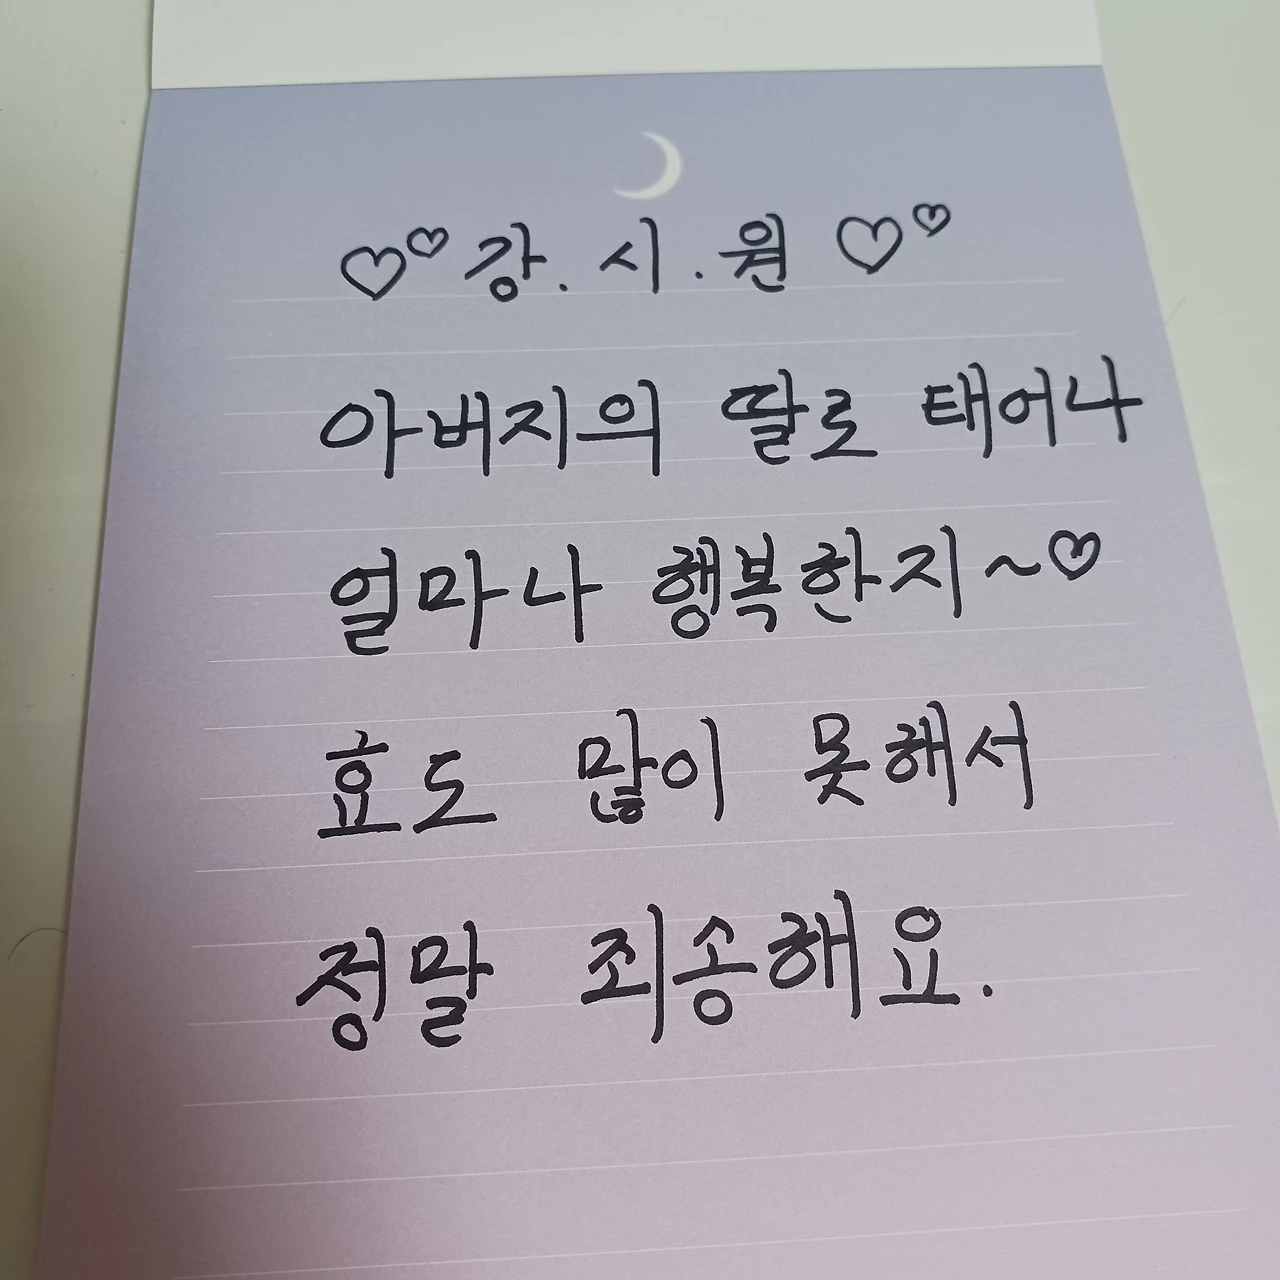 ♡♡강.시.원♡♡
아버지의 딸로 태어나
얼마나 행복한지~♡
효도 많이 못해서
정말 죄송해요.